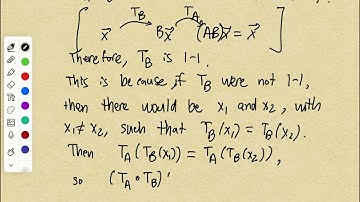 T_B T_A
x⃗ Bx⃗ (AB)x⃗ = x⃗
Therefore, T_B is 1-1.
This is because if T_B were not 1-1,
then there would be x₁ and x₂, with
x₁ ≠ x₂, such that T_B(x₁) = T_B(x₂).
Then T_A(T_B(x₁)) = T_A(T_B(x₂)),
so (T_A ∘ T_B)'